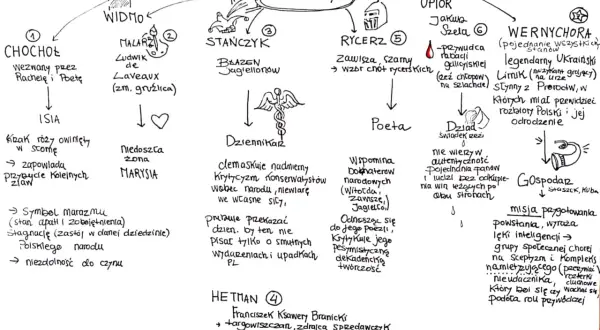 WIDMO
① CHOCHOŁ
wezwany przez
Rachelę i Poetę
ISIA
Krzak róży owinięty
w słomę
→ zapowiada
przybycie kolejnych
zjaw
→ symbol marazmu
(stan apatii i zobojętnienia)
stagnację (zastój w danej dziedzinie)
Polskiego narodu
→ niezdolność do czynu
②
MALARZ
Ludwik
de
Laveaux
(zm. gruźlica)
Niedoszła
żona
MARYSIA
③
STAŃCZYK
BŁAZEN
Jagiellonów
Dziennikarz
demaskuje nadmierny
krytycyzm konserwatystów
wobec narodu, niewiarę
we własne siły,
próbuje przekazać
dzien. by ten nie
pisał tylko o smutnych
wydarzeniach i upadkach,
PL
HETMAN ④
Franciszek Ksawery Branicki
→ targowiczanin, zdrajca sprzedawczyk
RYCERZ ⑤
Zawisza Czarny
→ wzór cnót rycerskich
Poeta
Wspomina
bohaterów
narodowych
(Witolda,
Zawiszę,
Jagiełłę)
Odnosząc się
do jego poezji,
krytykuje jego
pesymistyczną
dekadencką
twórczość
UPIÓR
Jakub
Szela ⑥
-przywódca
rabacji
galicyjskiej
(rzeź chłopów
na szlachcie)
Dziad
świadek rzezi
nie wierzy w
autentyczność
pojednania panów
i ludzi bez odkupienia
win leżących po
obu stronach
WERNYCHORA
(pojednanie wszystkich
stanów
legendarny Ukraiński
Lirnik (muzykant grający
na lirze
słynny z Proroctw, w
których miał przewidzieć
rozbiory Polski i jej
odrodzenie
GOspodarz
STASZEK, KUBA
misja przygotowania
powstania, wyraża
lęki inteligencji →
grupy społecznej chorej
na sceptyzm i kompleksy
namiętującego
rozterki
duchowe
który boi się czy
podoła roli przywódczej